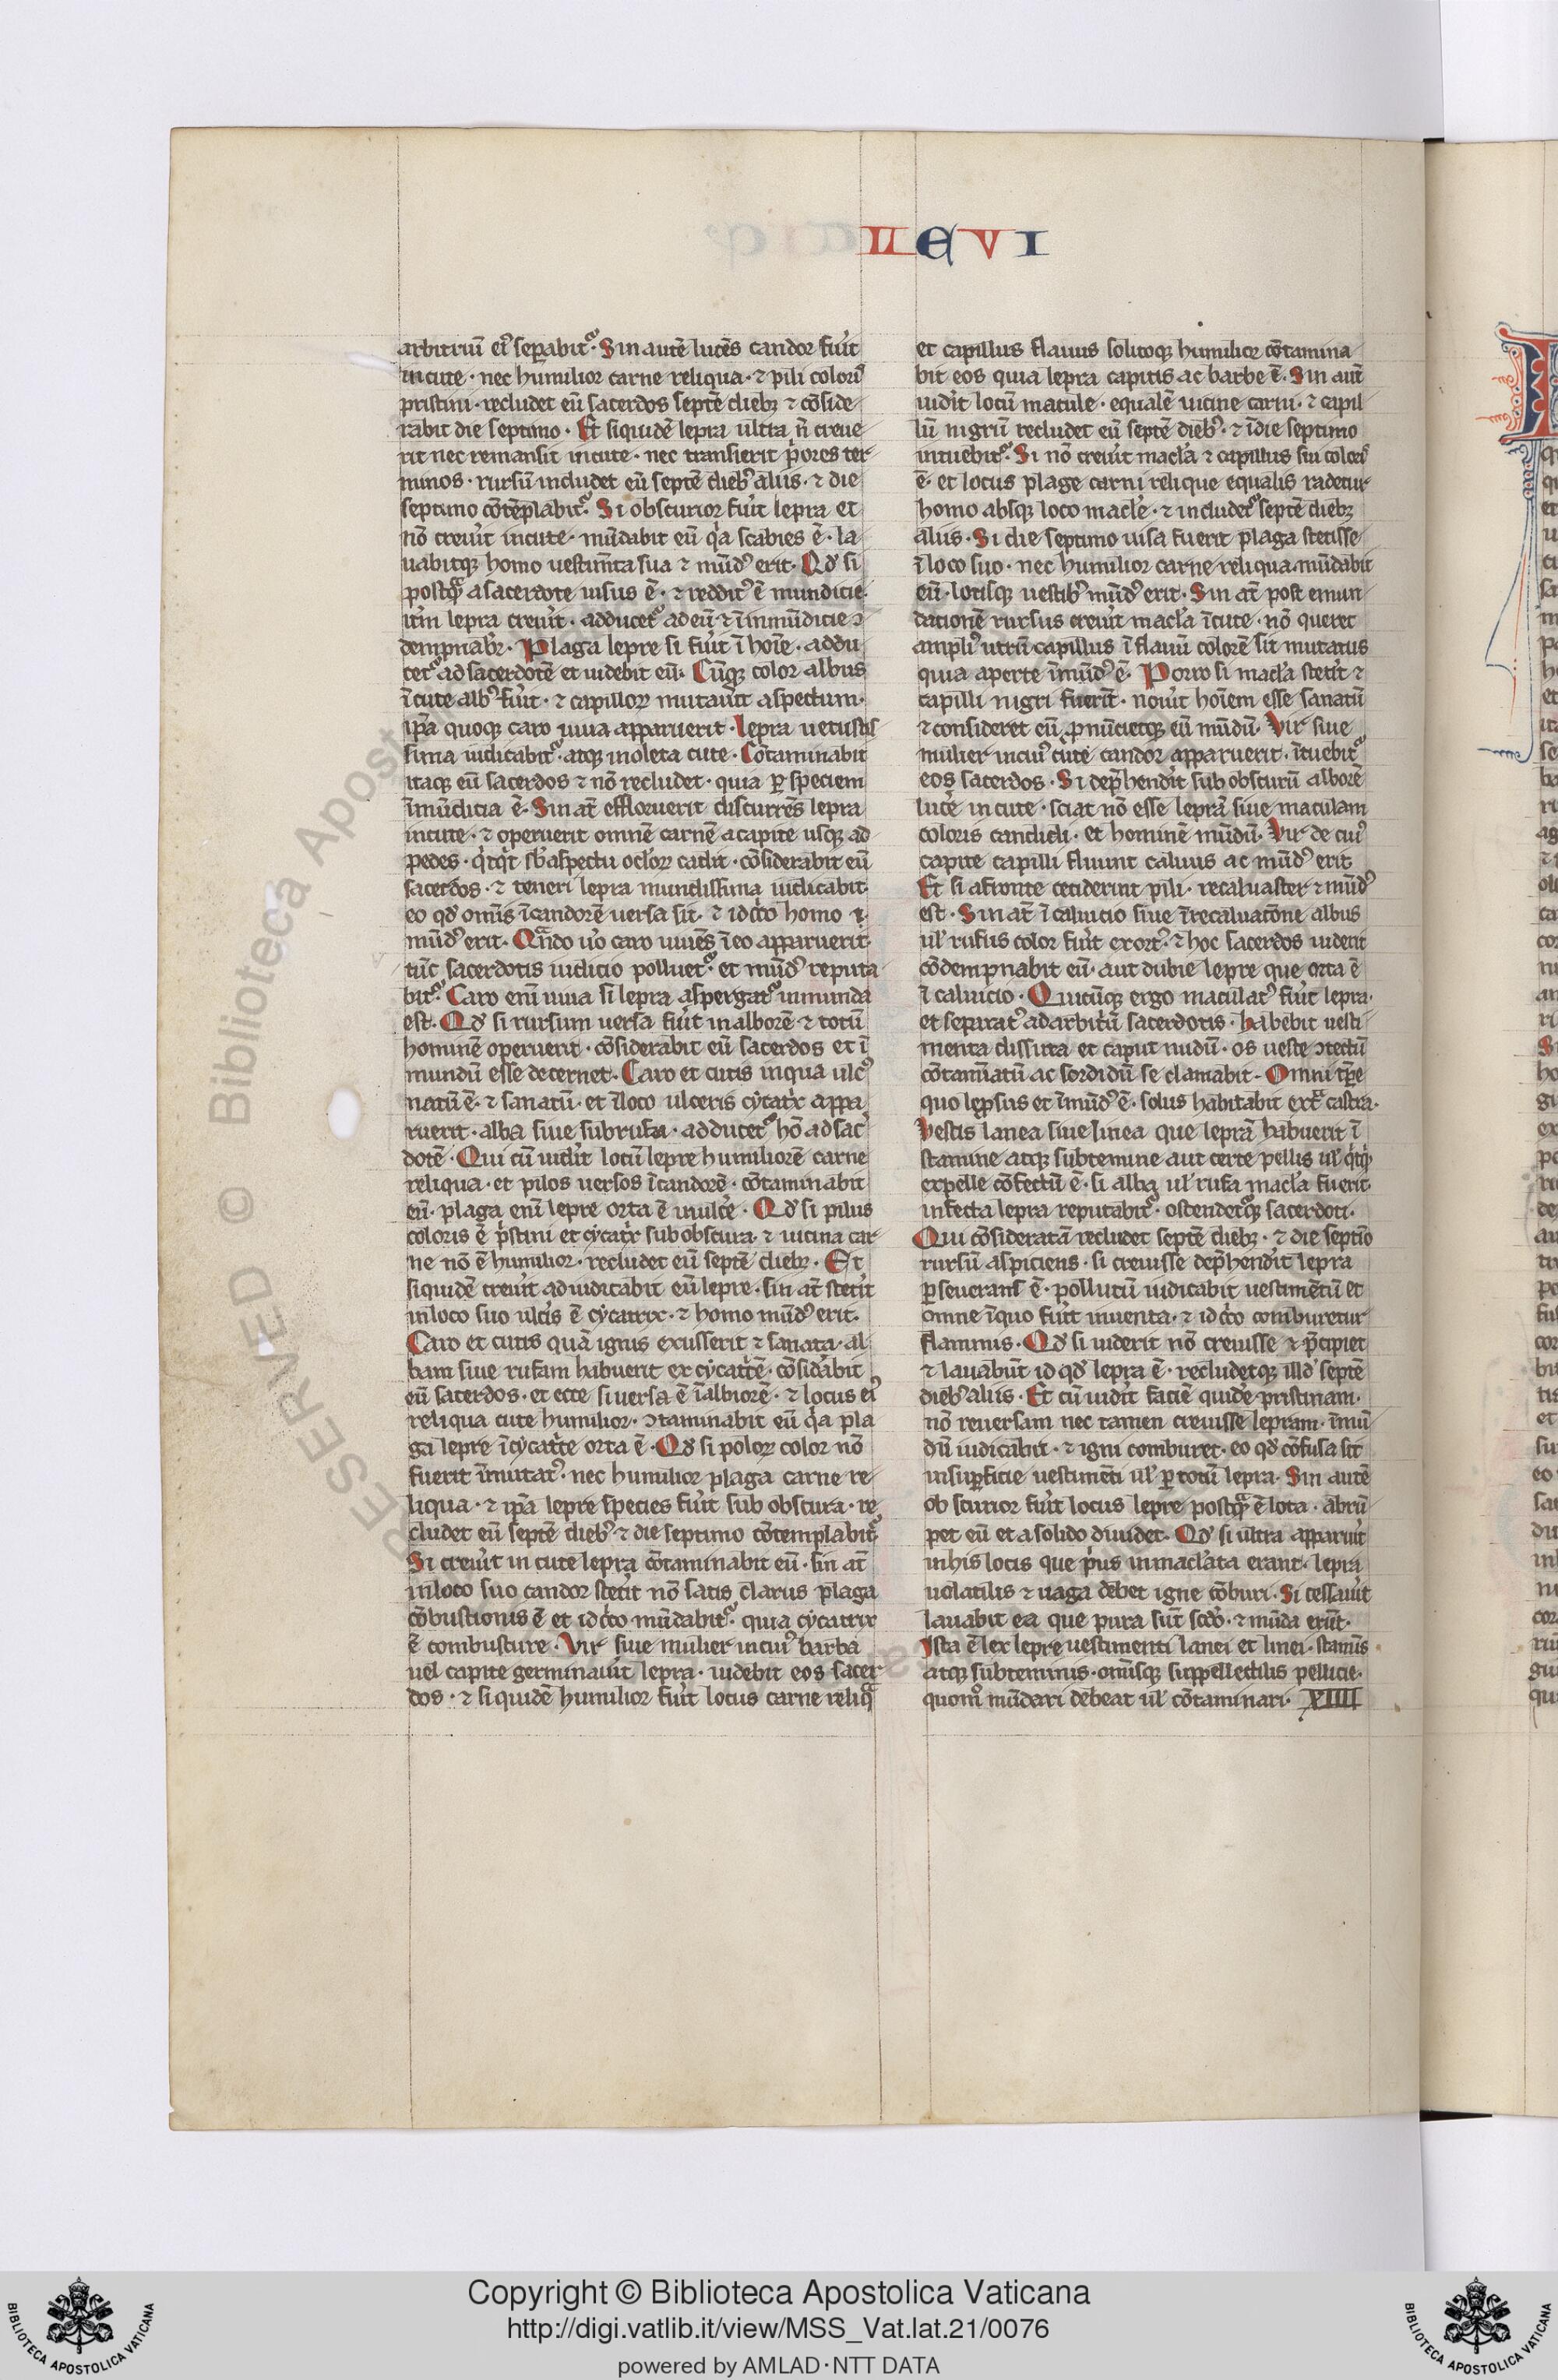 LEVI
arbitriū eiꝰ sepabit᷑. Sin autē lucēs candor fuit
in cute. nec humilior carne reliqua. ⁊ pili colorꝭ
pristini. recludet eū sacerdos septē diebꝫ ⁊ cōside
rabit die septimo. Et siquidē lepra ultra ñ creue
rit nec remansit in cute. nec transierit p̉ores ter
minos. rursū includet eū septē diebꝰ aliis. ⁊ die
septimo cōtēplabit᷑. Si obscurior fuit lepra et
nō creuit in cute. mūdabit eū qͥa scabies ē. la
uabitqꝫ homo uestim̄ta sua ⁊ mūdꝰ erit. Qd̕ si
postqᷓ a sacerdote uisus ē. ⁊ redditꝰ ē mundicie
itm̄ lepra creuit. adducet᷑ ad eū ⁊ ī inmūdicie ɔ
dempnabr̄. Plaga lepre si fuit ī hoīe. addu
cet᷑ ad sacerdotē et uidebit eū. Cūqꝫ color albus
ī cute albꝰ fuit. ⁊ capilloꝝ mutauit aspectum.
ip̄a quoqꝫ caro uiua apparuerit. lepra uetustis
sima iudicabit᷑. atqꝫ inoleta cute. Cōtaminabit
itaqꝫ eū sacerdos ⁊ nō recludet. quia ꝑspeciem
īmūdicia ē. Sin at̄ effloruerit discurrēs lepra
in cute. ⁊ operuerit omnē carnē a capite usqꝫ ad
pedes. qͥcqͥt sb̕ aspectu oc̄loꝝ cadit. cōsiderabit eū
sacerdos. ⁊ teneri lepra mundissima iudicabit.
eo qd̕ om̄is ī candorē uersa sit. ⁊ idcͥco homo i.
mūdꝰ erit. Qn̄do uͦo caro uiuēs ī eo apparuerit.
tūc sacerdotis iudicio polluet᷑. et mūdꝰ reputa
bit᷑. Caro enī uiua si lepra aspergat᷑ inmunda
est. Qd̕ si rursum uersa fuit in alborē ⁊ totū
hominē operuerit. cōsiderabit eū sacerdos et ī
mundū esse decernet. Caro et cutis in qua ulcꝰ
natū ē. ⁊ sanatū. et ī loco ulceris cycatͥx appa
ruerit. alba siue subrufa. adducet᷑ hō ad sac̕
dotē. Qui cū uidit locū lepre humiliorē carne
reliqua. et pilos uersos ī candorē. cōtaminabit
eū. plaga enī lepre orta ē in ulc̕e. Qd̕ si pilus
coloris ē pͥstini et cycatͥx sub obscura. ⁊ uicina car
ne nō ē humilior. recludet eū septē diebꝫ. Et
siquidē creuit adiudicabit eū lepre. sin at̄ stetit
in loco suo ulc̕is ē cycatrix. ⁊ homo mūdꝰ erit.
Caro et cutis quā ignis exusserit ⁊ sanata. al
bam siue rufam habuerit ex cycatͥcē. cōsid̕abit
eū sacerdos. et ecce si uersa ē ī albiorē. ⁊ locus eiꝰ
reliqua cute humilior. ɔtaminabit eū qͥa pla
ga lepre ī cycatͥce orta ē. Qd̕ si poloꝝ color nō
fuerit īmutatꝰ. nec humilior plaga carne re
liqua. ⁊ ip̄a lepre species fuit sub obscura. re
cludet eū septē diebꝰ ⁊ die septimo cōtemplabit᷑.
Si creuit in cute lepra cōtaminabit eū. sin at̄
in loco suo candor stetit nō satis clarus plaga
cōbustionis ē et idcͥco mūdabit᷑. quia cycatrix
ē combusture. Vir siue mulier in cuiꝰ barba
uel capite germinauit lepra. uidebit eos sacer
dos. ⁊ siquidē humilior fuit locus carne reliqᷓ
et capillus flauus solitoqꝫ humilior cōtamina
bit eos quia lepra capitis ac barbe ē. Sin aut̄
uidit locū macule. equalē uicine carni. ⁊ capil
lū nigrū recludet eū septē diebꝰ. ⁊ ī die septimo
intuebit᷑. Si nō creuit macl̕a ⁊ capillus sui colorꝭ
ē. et locus plage carni relique equalis radetur
homo absqꝫ loco macl̕e. ⁊ includet᷑ septē diebꝫ
aliis. Si die septimo uisa fuerit plaga stetisse
ī loco suo. nec humilior carne reliqua. mūdabit
eū. lotisqꝫ uestibꝰ mūdꝰ erit. Sin at̄ post emun
dationē rursus creuit macl̕a ī cute. nō queret
ampliꝰ utrū capillus ī flauū colorē sit mutatus
quia aperte īmūdꝰ ē. Porro si macl̕a stetit ⁊
capilli nigri fuerīt. nouit hoīem esse sanatū
⁊ consideret eū ꝓnūcietqꝫ eū mūdū. Vir siue
mulier in cuiꝰ cute candor apparuerit. ītuebit᷑
eos sacerdos. Si dep̄hendit sub obscurū alborē
luc̕e in cute. sciat nō esse leprā siue maculam
coloris candidi. et hominē mūdū. Vir de cuiꝰ
capite capilli fluunt caluus ac mūdꝰ erit
Et si a fronte ceciderint pili. recaluaster ⁊ mūdꝰ
est. Sin at̄ ī caluicio siue ī recaluatōne albus
ul̕ rufus color fuit exortꝰ. ⁊ hoc sacerdos uiderit
cōdempnabit eū. aut dubie lepre que orta ē
ī caluicio. Quicūqꝫ ergo maculatꝰ fuit lepra.
et separatꝰ ad arbitͥū sacerdotis. habebit uesti
menta dissuta et caput nudū. os ueste ɔtectū
cōtam̄iatū ac sordidū se clamabit. Omni tp̄re
quo lepsus et īmūdꝰ ē. solus habitabit extᷓ castra.
Vestis lanea siue linea que leprā habuerit ī
stamine atqꝫ subtemine aut certe pellis ul̕ qͥcqͥd
ex pelle cōfectū ē. si alba ul̕ rufa macl̕a fuerit.
infecta lepra reputabit᷑. ostendet᷑qꝫ sacerdoti.
Qui cōsideratā recludet septē diebꝫ. ⁊ die septīo
rursū aspiciens. si creuisse dep̄hendit lepra
ꝑseuerans ē. pollutū iudicabit uestimētū et
omne ī quo fuit inuenta. ⁊ idcͥco comburetur
flammis. Qd̕ si uiderit nō creuisse ⁊ p̄cipiet
⁊ lauabūt id qd̕ lepra ē. recludetqꝫ illd̕ septē
diebꝰ aliis. Et cū uidit faciē quidē pristinam.
nō reuersam nec tamen creuisse lepram. īmū
dū iudicabit. ⁊ igni comburet. eo qd̕ cōfusa sit
in suꝑficie uestimēti ul̕ ꝑ totū lepra. Sin autē
ob scurior fuit locus lepre postqᷓ ē lota. abrū
pet eū et a solido diuidet. Qd̕ si ultra apparuit
in his locis que pͥus inmacl̕ata erant. lepra
uolatilis ⁊ uaga debet igne cōburi. Si cessauit
lauabit ea que pura sūt scd̕o. ⁊ mūda erūt.
Ista ē lex lepre uestimenti lanei et linei. stamīs
atqꝫ subteminis. om̄isqꝫ suppellectilis pellicie.
quom̊ mūdari debeat ul̕ cōtaminari. XIIII
© Biblioteca Apost
RESERVED
Copyright © Biblioteca Apostolica Vaticana
http://digi.vatlib.it/view/MSS_Vat.lat.21/0076
powered by AMLAD·NTT DATA
BIBLIOTECA APOSTOLICA VATICANA
BIBLIOTECA APOSTOLICA VATICANA